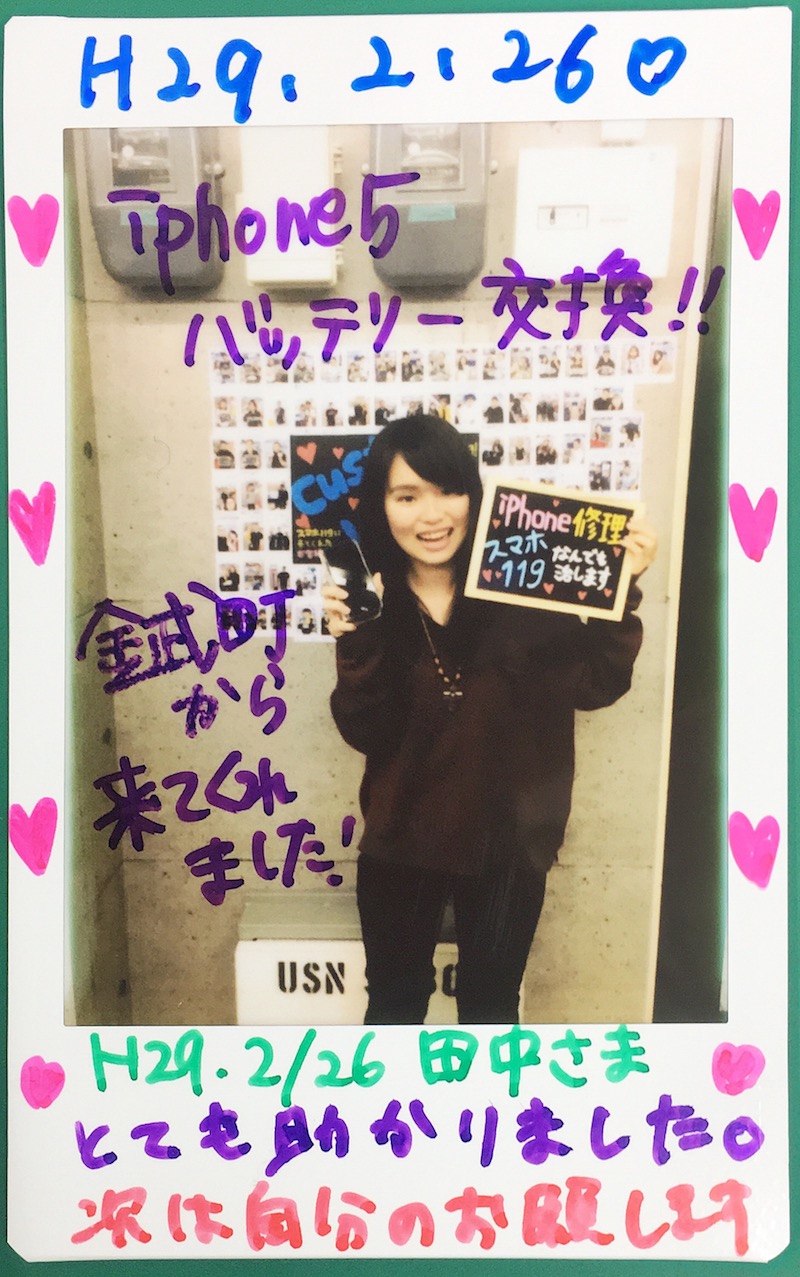 H29. 2. 26
iphone5
バッテリー交換!!
Cus
iPhone修理
スマホ なんでも
119 治します
金武町
から
来てくれ
ました!
USN
H29.2/26 田中さま
とても助かりました。
次は自分のお願します